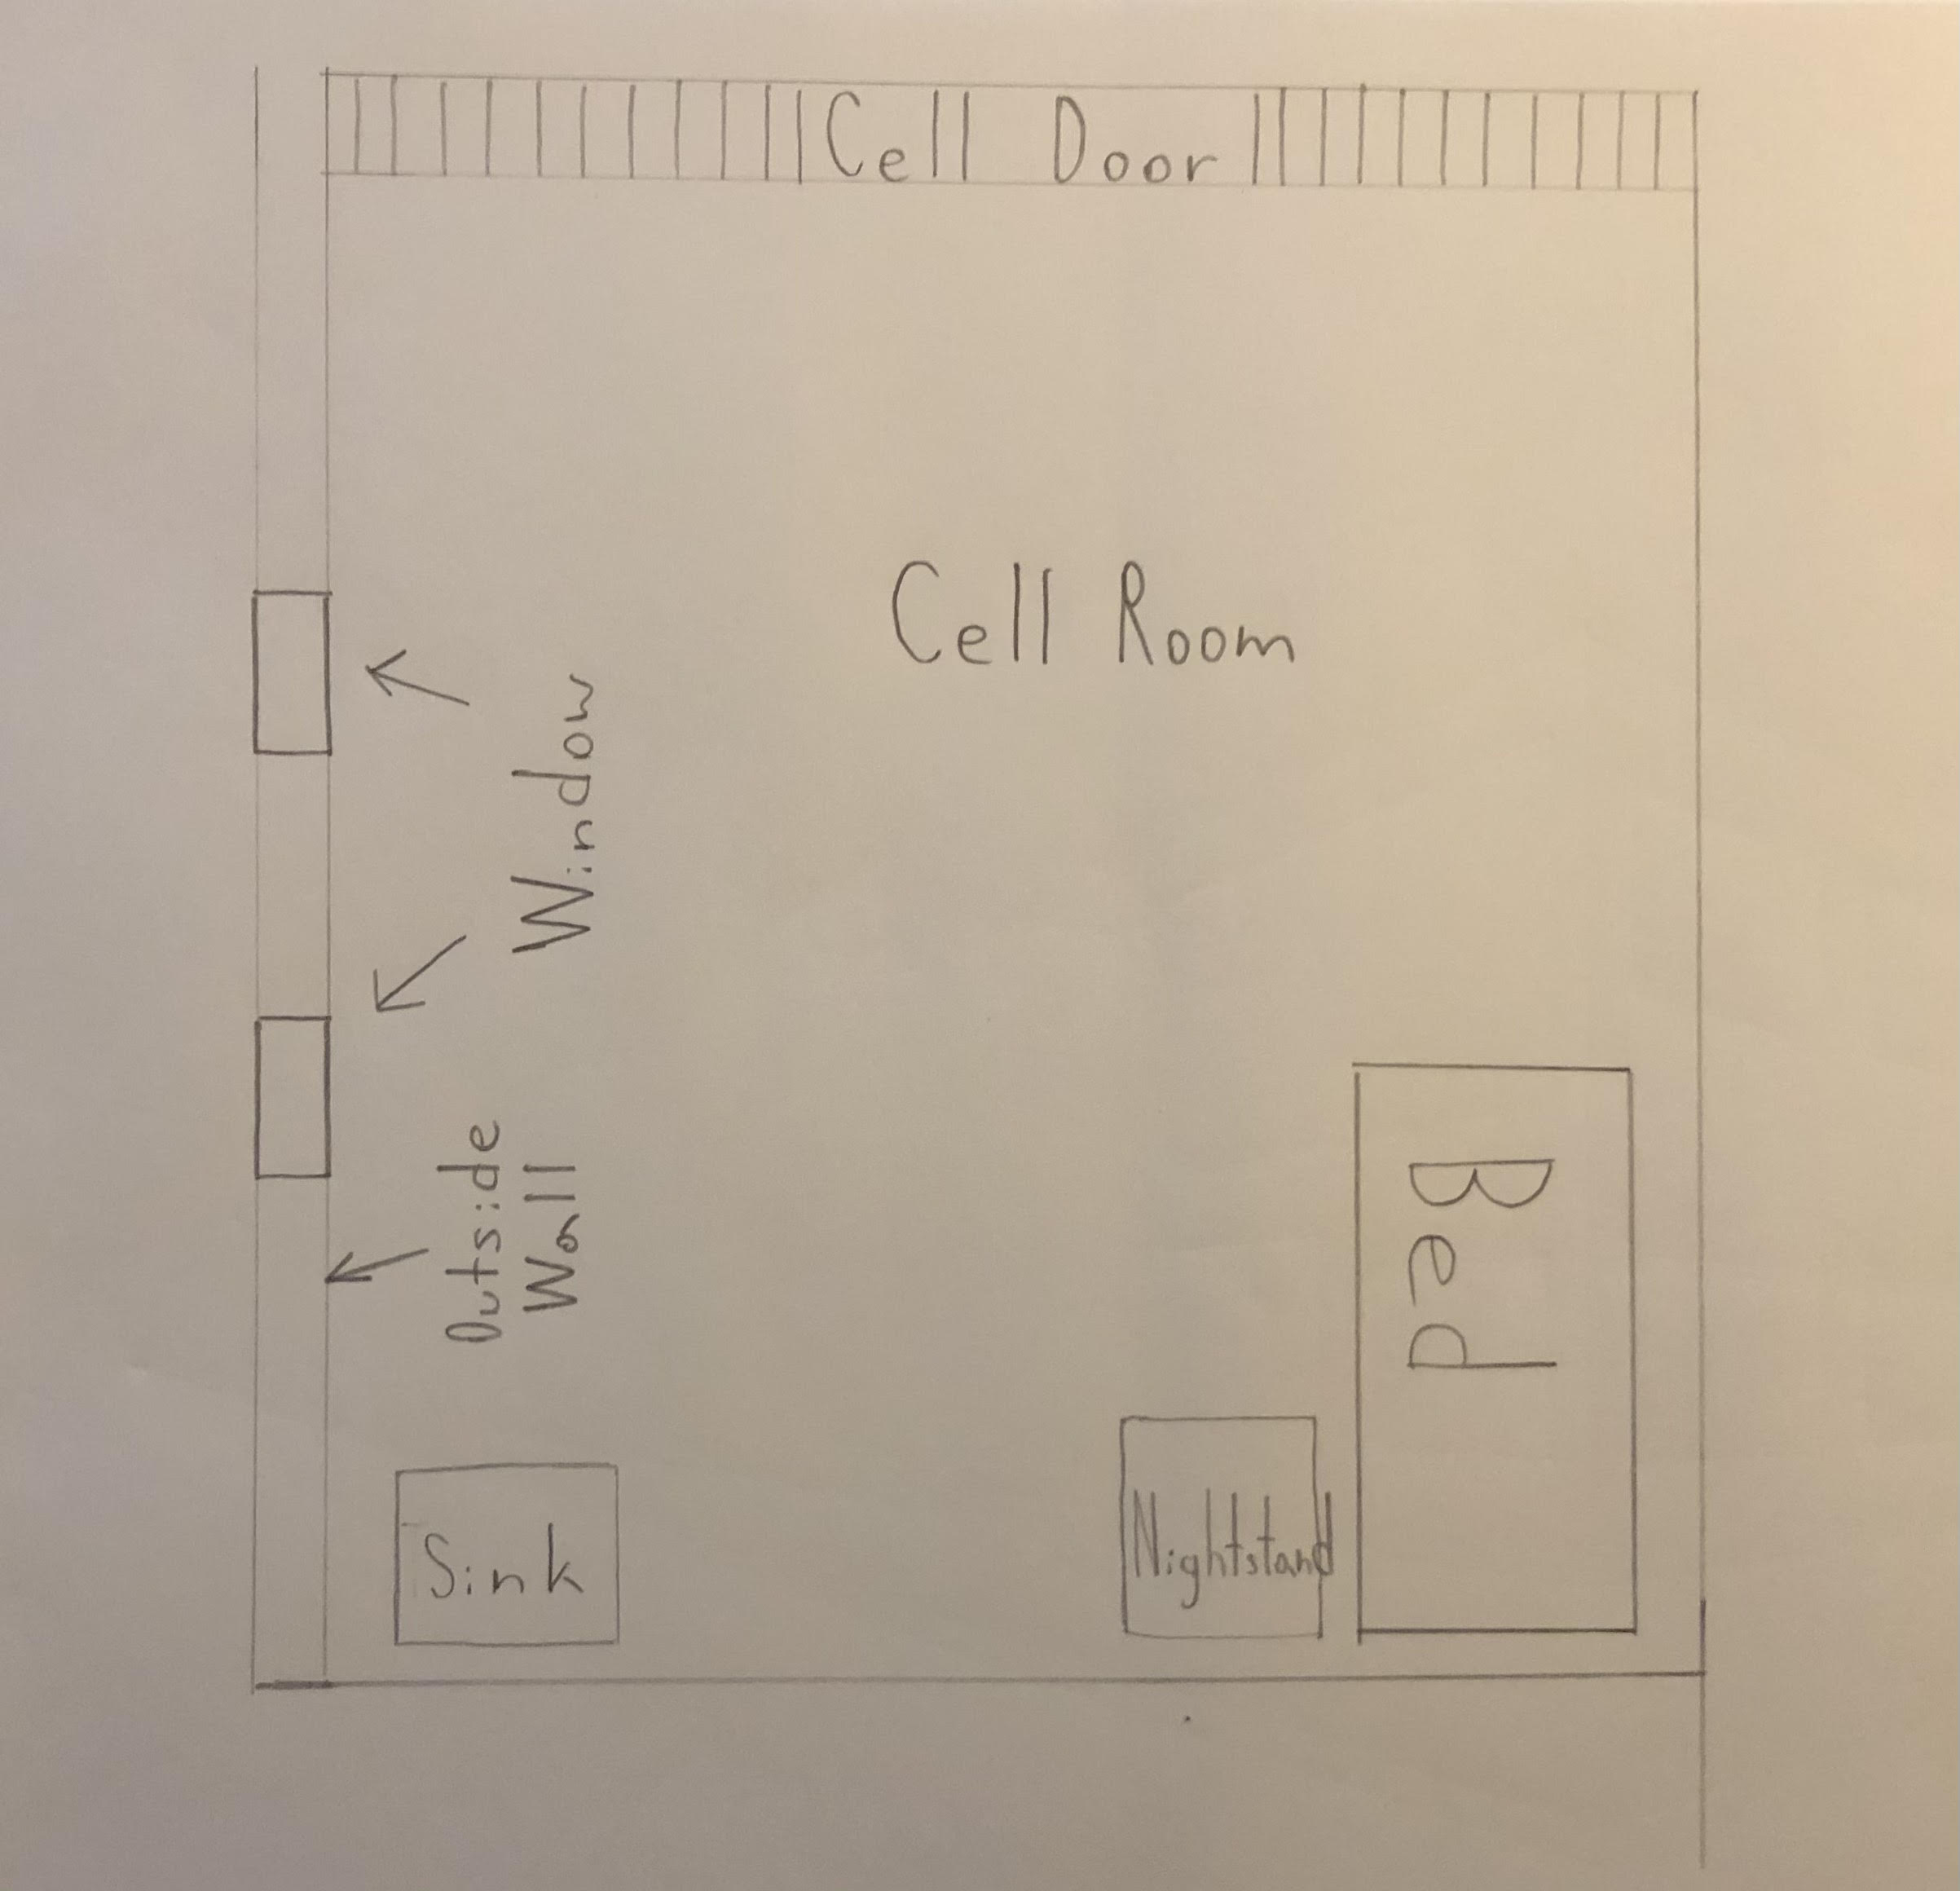 Cell Door
Cell Room
Window
Outside
Wall
Bed
Sink
Nightstand